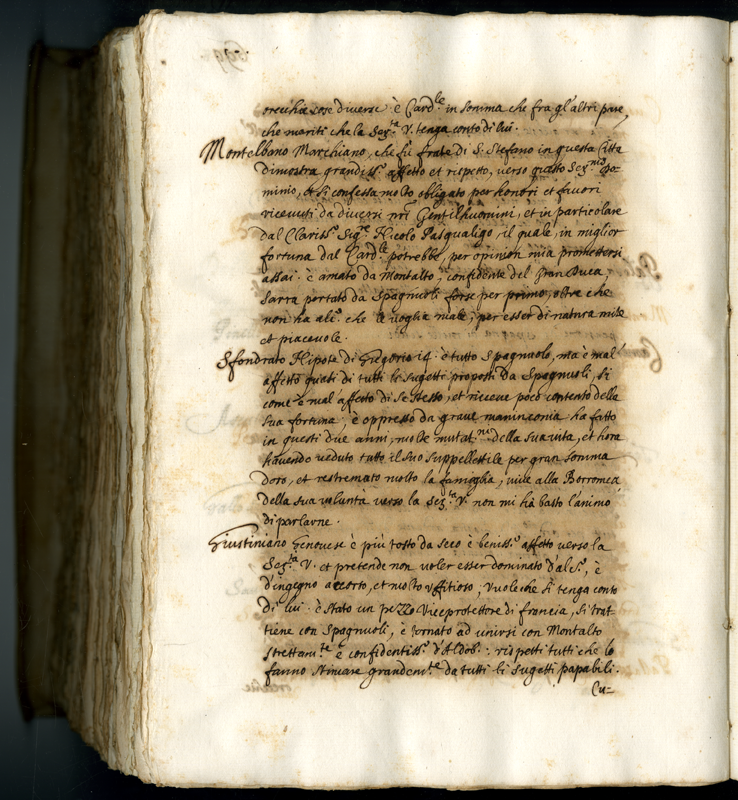 orecchia cose diverse. è Card.le in somma che fra gl'altri pare,
che mariti che la Ser.ta V. tenga conto di lui.
Montelbano Marchiano, che fu frate di S. Stefano in questa Citta
Dimostra grandiss.o affetto et rispetto, verso questo Ser.mo Do=
minio, et si confessa molto obligato per honori et favori
ricevuti da diversi nri Gentilhuomini, et in particolare
dal Clariss.o Sig.re Nicolo Pasqualigo, il quale, in miglior
fortuna dal Card.le potrebbe, per opinion mia promettersi
assai. è amato da Montalto, confidente del Gran Duca,
sarra portato da Spagnuoli forse per primo, oltra che
non ha alc.o che le voglia male, per esser di natura mite
et piacevole.
Sfondrato Nipote di Gregorio 14. è tutto Spagnuolo, ma è mal'
affetto quasi di tutti li sugetti proposti da Spagnuoli, si
come è mal'affetto di se stesso, et riceve poco contento della
sua fortuna, è oppresso da grave maninconia. ha fatto
in questi due anni, molte mutat.ni della sua vita, et hora
havendo veduto tutto il suo suppellettile per gran somma
doro, et restremato molto la fameglia, vive alla Borromea
della sua volunta verso la Ser.ta V. non mi hà basto l'animo
di parlarne.
Giustiniano Genovese è più tosto da seco è beniss.o affetto verso la
Ser.ta V. et pretende non voler esser dominato d'alc.o, è
d'ingegno accorto, et molto uffitioso, Vuole che si tenga conto
di lui. è stato un pezzo Viceprotettore di francia, si trat
tiene con Spagnuoli, è tornato ad unirsi con Montalto
strettam.te è confidentiss.o d'Aldob.: rispetti tutti che lo
fanno stimare grandem.te da tutti li sugetti papabili.
Cu=